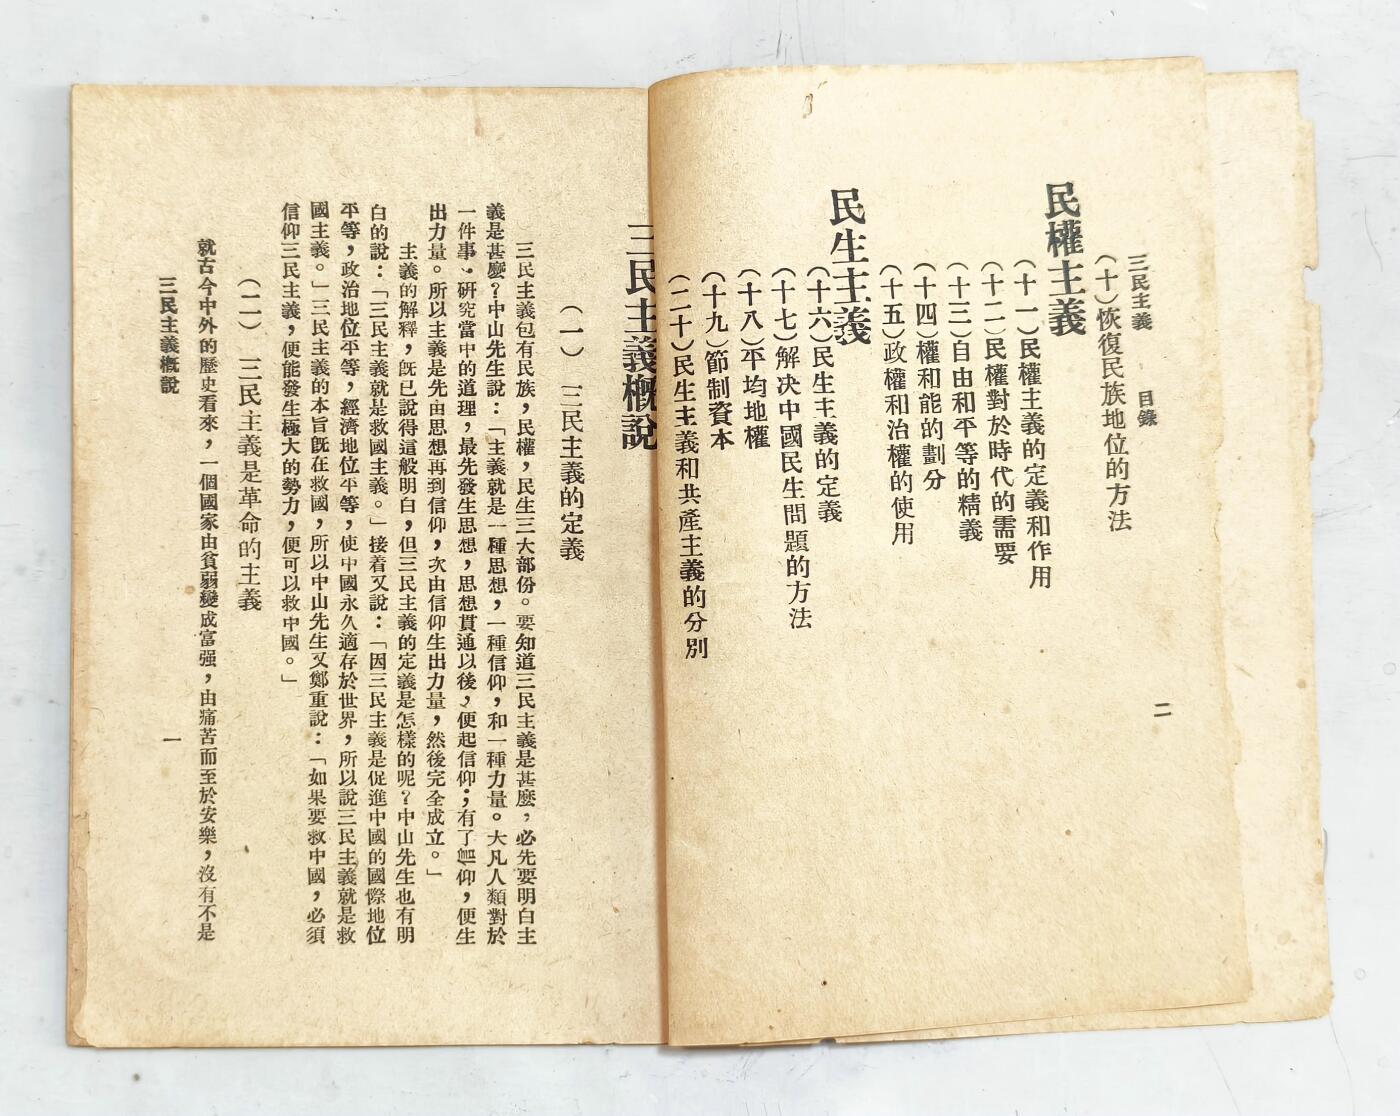 三民主義　目錄
二
（十）恢復民族地位的方法
民權主義
（十一）民權主義的定義和作用
（十二）民權對於時代的需要
（十三）自由和平等的精義
（十四）權和能的劃分
（十五）政權和治權的使用
民生主義
（十六）民生主義的定義
（十七）解决中國民生問題的方法
（十八）平均地權
（十九）節制資本
（二十）民生主義和共產主義的分別
三民主義概說
（一）　三民主義的定義
三民主義包有民族，民權，民生三大部份。要知道三民主義是甚麼，必先要明白主
義是甚麼？中山先生說：「主義就是一種思想，一種信仰，和一種力量。大凡人類對於
一件事，研究當中的道理，最先發生思想，思想貫通以後，便起信仰；有了信仰，便生
出力量。所以主義是先由思想再到信仰，次由信仰生出力量，然後完全成立。」
主義的解釋，旣已說得這般明白，但三民主義的定義是怎樣的呢？中山先生也有明
白的說：「三民主義就是救國主義。」接着又說：「因三民主義是促進中國的國際地位
平等，政治地位平等，經濟地位平等，使中國永久適存於世界，所以說三民主義就是救
國主義。」三民主義的本旨旣在救國，所以中山先生又鄭重說：「如果要救中國，必須
信仰三民主義，便能發生極大的勢力，便可以救中國。」
（二）　三民主義是革命的主義
就古今中外的歷史看來，一個國家由貧弱變成富强，由痛苦而至於安樂，沒有不是
三民主義概說
一